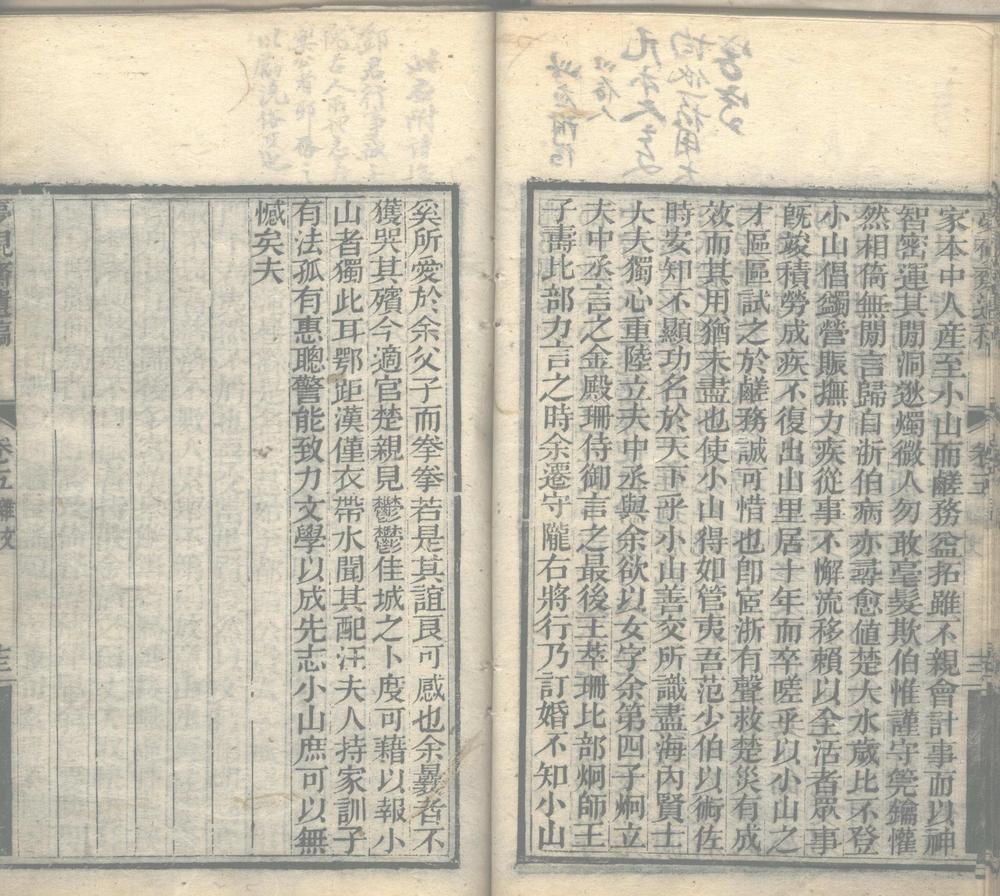 家本中人產至小山而鹺務益拓雖不親會計事而以神
智密運其閒洞逖燭微人勿敢毫髮欺伯惟謹守筦鑰懽
然相倚無閒言歸自浙伯病亦尋愈値楚大水歲比不登
小山倡蠲營賑撫力疾從事不懈流移賴以全活者眾事
旣竣積勞成疾不復出山里居十年而卒嗟乎以小山之
才區區試之於鹺務誠可惜也卽宦浙有聲救楚災有成
效而其用猶未盡也使小山得如管夷吾范少伯以術佐
時安知不顯功名於天下乎小山善交所識盡海內賢士
大夫獨心重陸立夫中丞與余欲以女字余第四子炯立
夫中丞言之金殿珊侍御言之最後王萃珊比部炯師王
子壽比部力言之時余遷守隴右將行乃訂婚不知小山
奚所愛於余父子而拳拳若是其誼良可感也余曩者不
獲哭其殯今適官楚親見鬱鬱佳城之卜度可藉以報小
山者獨此耳鄂距漢僅衣帶水聞其配汪夫人持家訓子
有法孤有惠聰警能致力文學以成先志小山庶可以無
憾矣夫
夢硯齋遺稿
卷五雜文